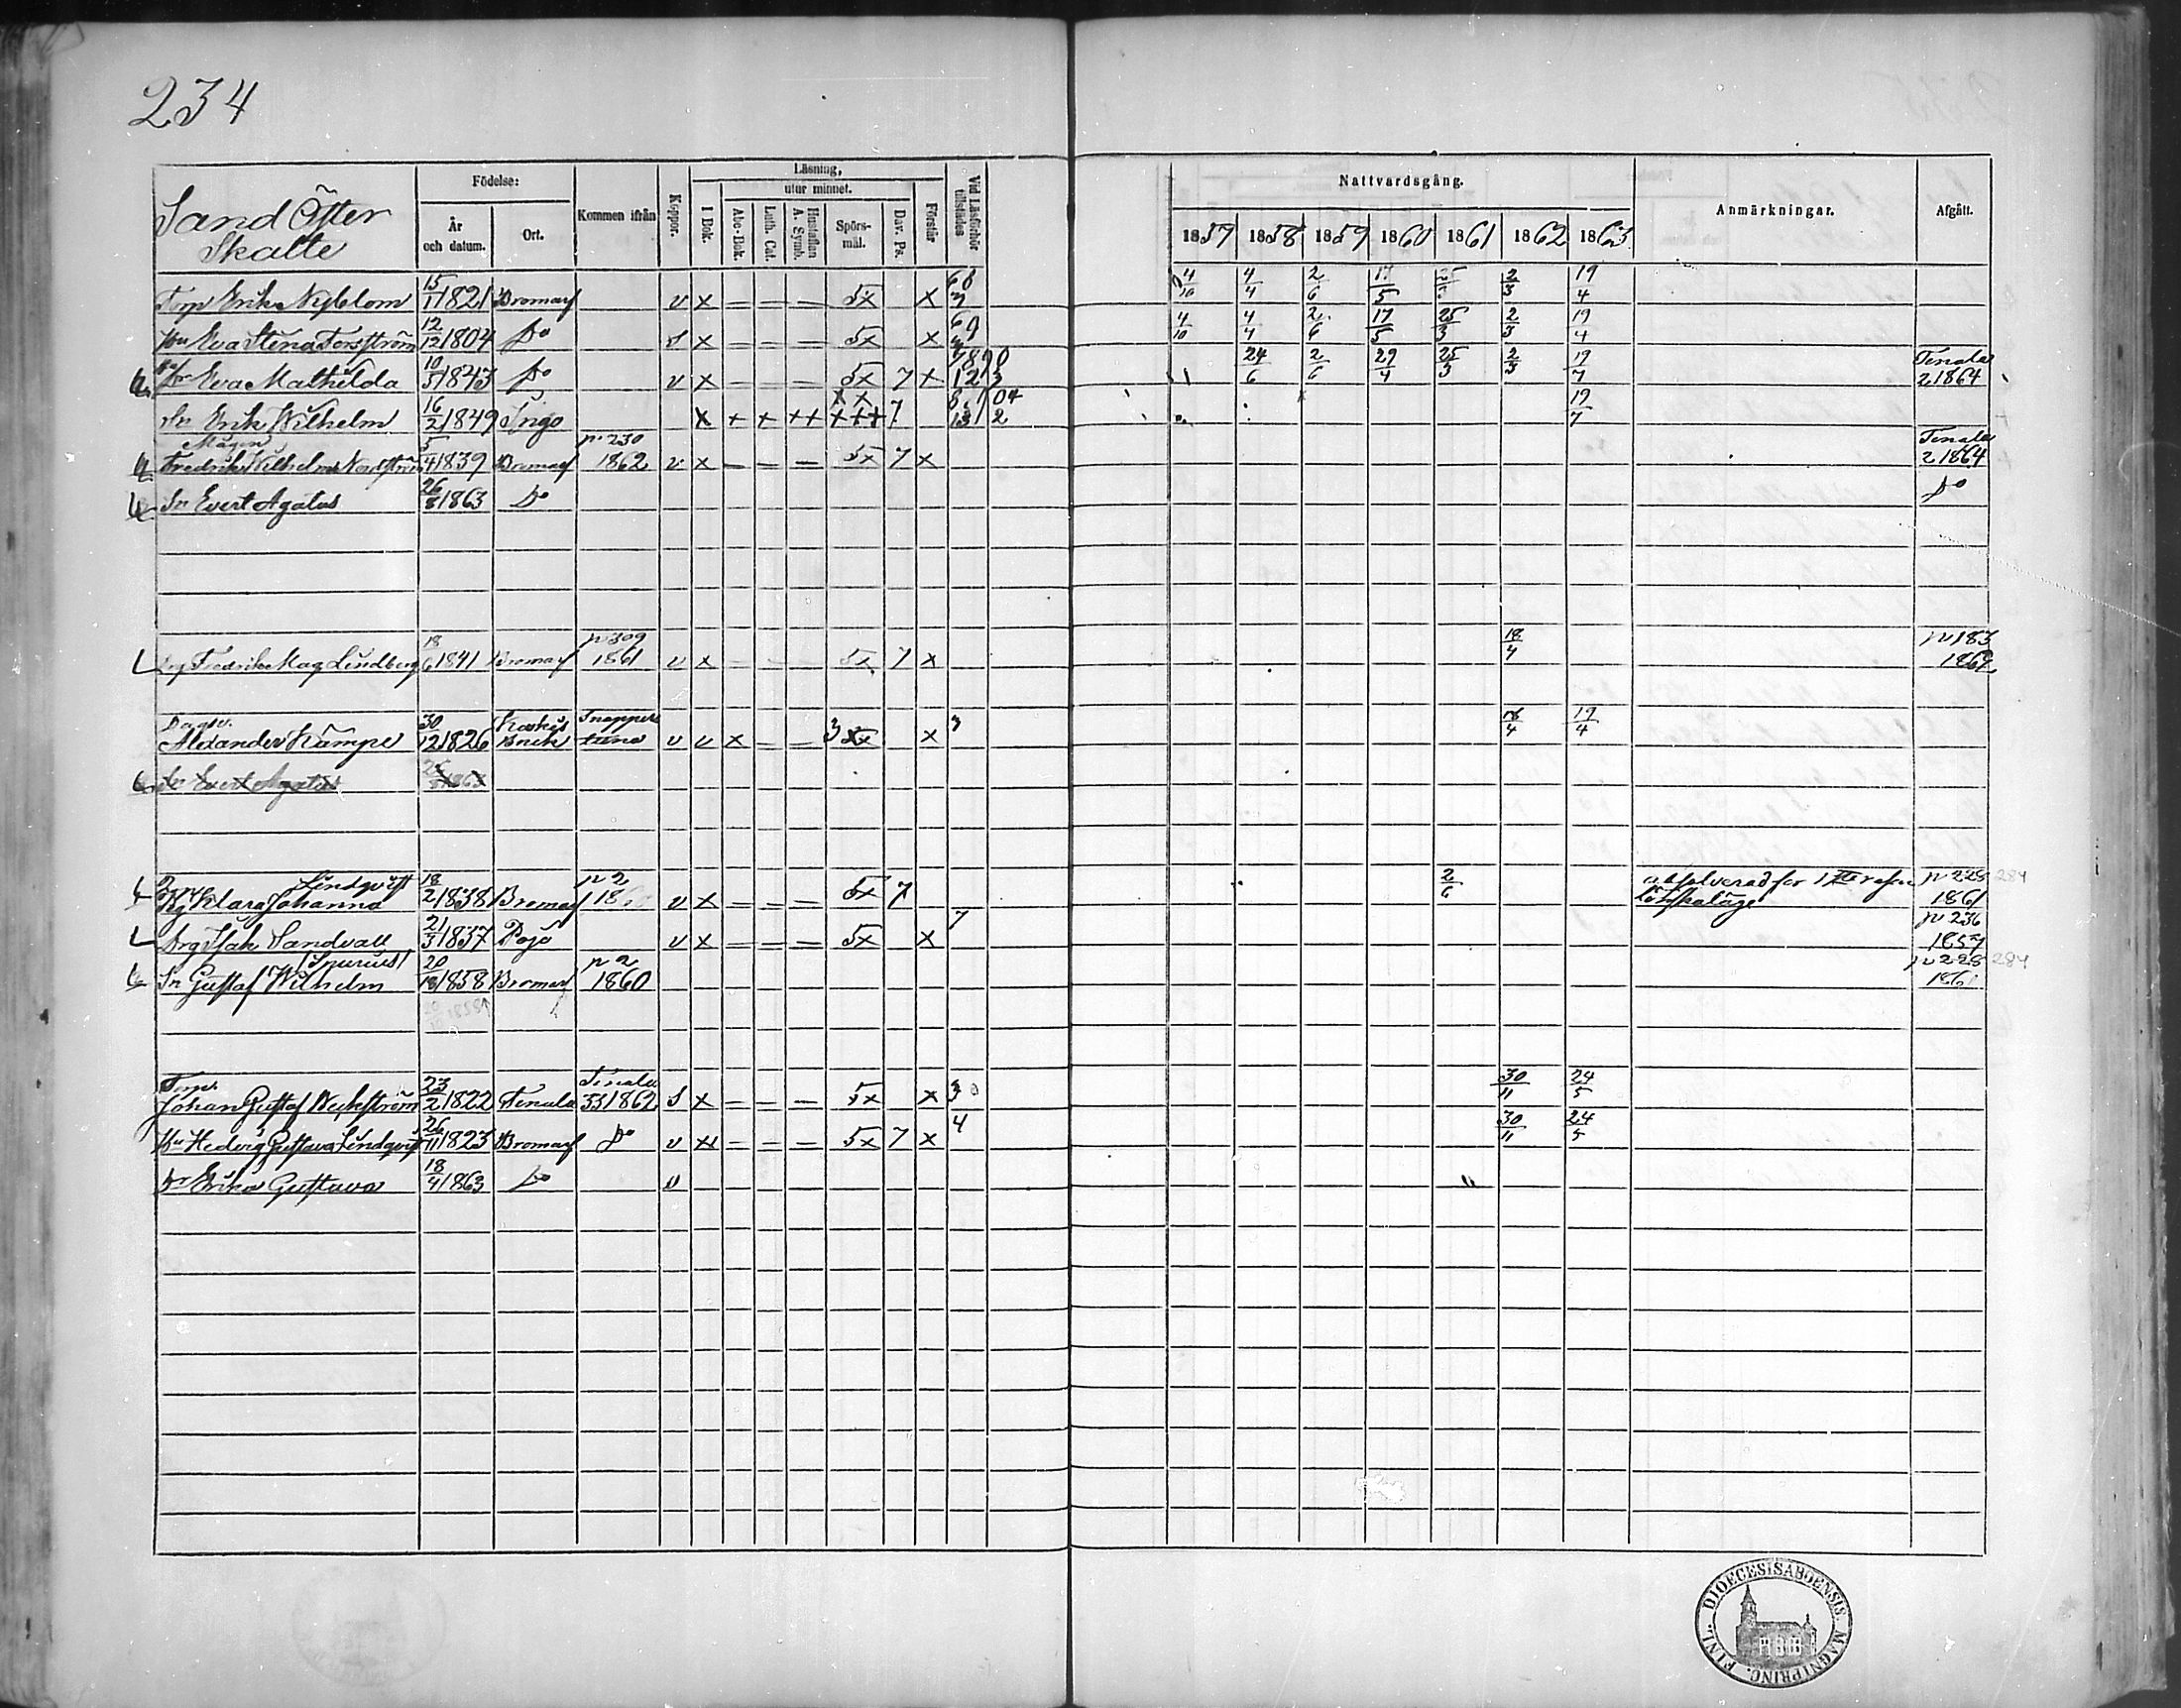 234
Födelse:
Läsning,
utur minnet.
Nattvardsgång.
Sand Öster
Skatte
År
och datum.
Ort.
Kommen ifrån
Koppor.
I Bok.
Abc-Bok.
Luth. Cat.
Hustaflan A. Symb.
Spörs-
mål.
Dav. Ps.
Förstår
Vid Läsförhör tillstädes
1857 1858 1859 1860 1861 1862 1863
Anmärkningar.
Afgått.
Torp Erik Nyblom 15/1 1821 Bromarf v x – – – 5x x 4/10 4/4 2/6 17/5 2/3 19/4
Hu Eva Stina Forsström 12/12 1804 Do s x – – – 5x x 4/10 4/4 2/6 17/5 25/3 2/3 19/4
Dr Eva Mathilda 10/5 1843 Do v x – – – 5x 7 x 24/6 2/6 29/4 25/3 2/3 19/7 Tenala 2 1864
Sn Erik Wilhelm 16/2 1849 Ingo x + + ++ +++ 7 19/7
Mågen
Fredrik Wilhelm Nordström 5/4 1839 Bromarf p 230 1862 v x – – – 5x 7 x Tenala 2 1864
Sn Evert Agatus 26/8 1863 Do Do
Fredrika Mag Lindberg 18/6 1841 Bromarf p 309 1861 v x – – – 5x 7 x 18/4 p 183 1862
Alexander Kämpe 30/12 1826 Koskis Bruk Snappertuna v v x – – 3 xx x 3 18/4 19/4
Sn Evert Agatus 26/8 1863
Lindqvist
Klara Johanna 18/2 1838 Bromarf p 2 v x – – – 5x 7 2/6 absolverad för 1 p 228 284 1861
Drg Isak Sandvall 21/3 1837 Pojo v x – – – 5x x 7 p 236 1857
Spurius
Sn Gustaf Wilhelm 20/18 1858 Bromarf p 2 1860 p 228 284 1861
Torp.
Johan Gustaf Weckström 23/2 1822 Tenala Tenala 33 1862 s x – – – 5x x 3 30/11 24/5
Hu Hedvig Gustava Lindqvist 26/11 1823 Bromarf Do v xx – – – 5x 7 x 4 30/11 24/5
Dr Erika Gustava 18/4 1863 Do v
FINL. DIOECESIS ABOENSIS MAGNI PRINC.